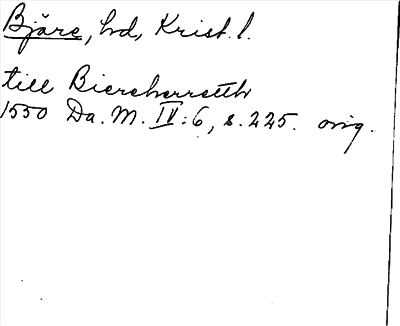 Bjäre, hd, Krist. l.
till Biercherretth
1550 Da. M. IV:6, s. 225. orig.